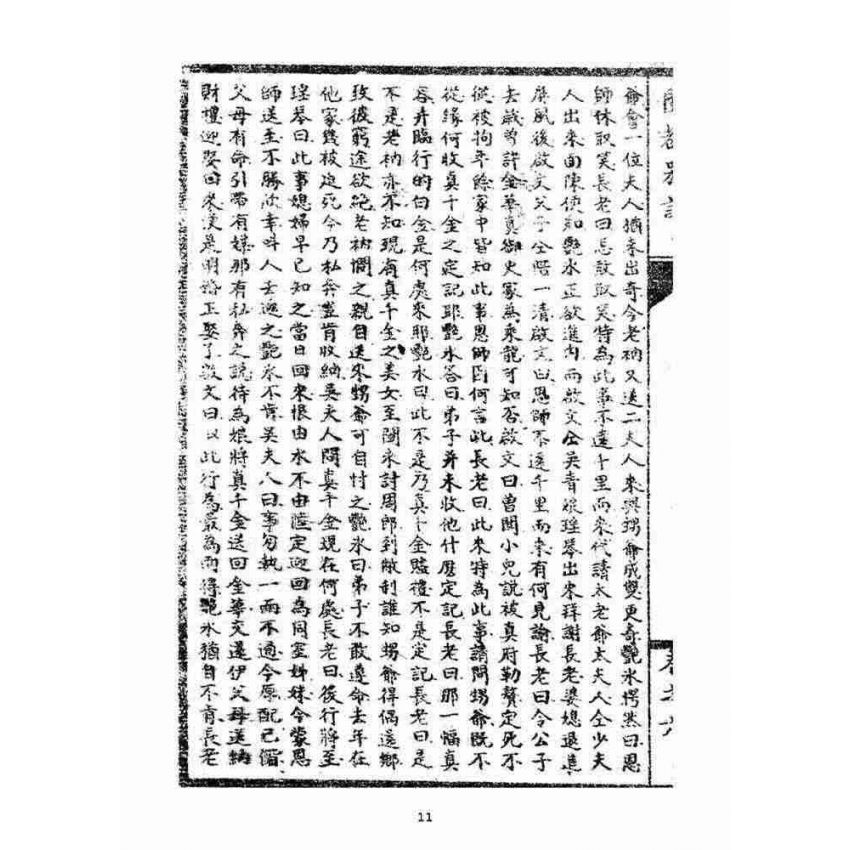 爺會一位夫人猶未出奇今老衲又送二夫人來與甥爺成雙更奇艷氷愕然曰恩
師休取笑長老曰怎敢取笑特為此事不遠千里而來代請太老爺太夫人仝少夫
人出來面陳使知艷氷正欲進內而啟文仝吳青娘瑤琴出來拜謝長老婆媳退進
屏風後啟文父子仝階一清啟文曰恩師不遠千里而來有何見諭長老曰令公子
去歲曾許金華真御史家為乘龍可知否啟文曰曾聞小兒說被真府勒贅定死不
從被拘年餘家中皆知此事恩師因何言此長老曰此來特為此事請問甥爺既不
從緣何收真千金之定記耶艷氷答曰弟子并未收他什麼定記長老曰那一幅真
容并臨行的白金是何處來耶艷氷曰此不是乃真千金贐禮不是定記長老曰是
不是老衲亦不知現有真千金之美女至閩來討周郎到敝刹誰知甥爺得偶還鄉
致彼窮途欲絕老衲憫之親自送來甥爺可自忖之艷氷曰弟子不敢遵命去年在
他家幾被迫死今乃私奔豈肯收納吳夫人問真千金現在何處長老曰後行將至
瑤琴曰此事媳婦早已知之當日回來恨由水不由陸定迎回為同室姊妹今蒙恩
師送至不勝欣幸叫人去迎之艷氷不肯吳夫人曰事勿執一而不通今原配已偕
父母有命引帶有媒那有私奔之說待為娘將真千金送回金華交還伊父母送納
財禮迎娶回來漢是明婚正娶了啟文曰以此行為最為兩得艷氷猶自不肯長老
11